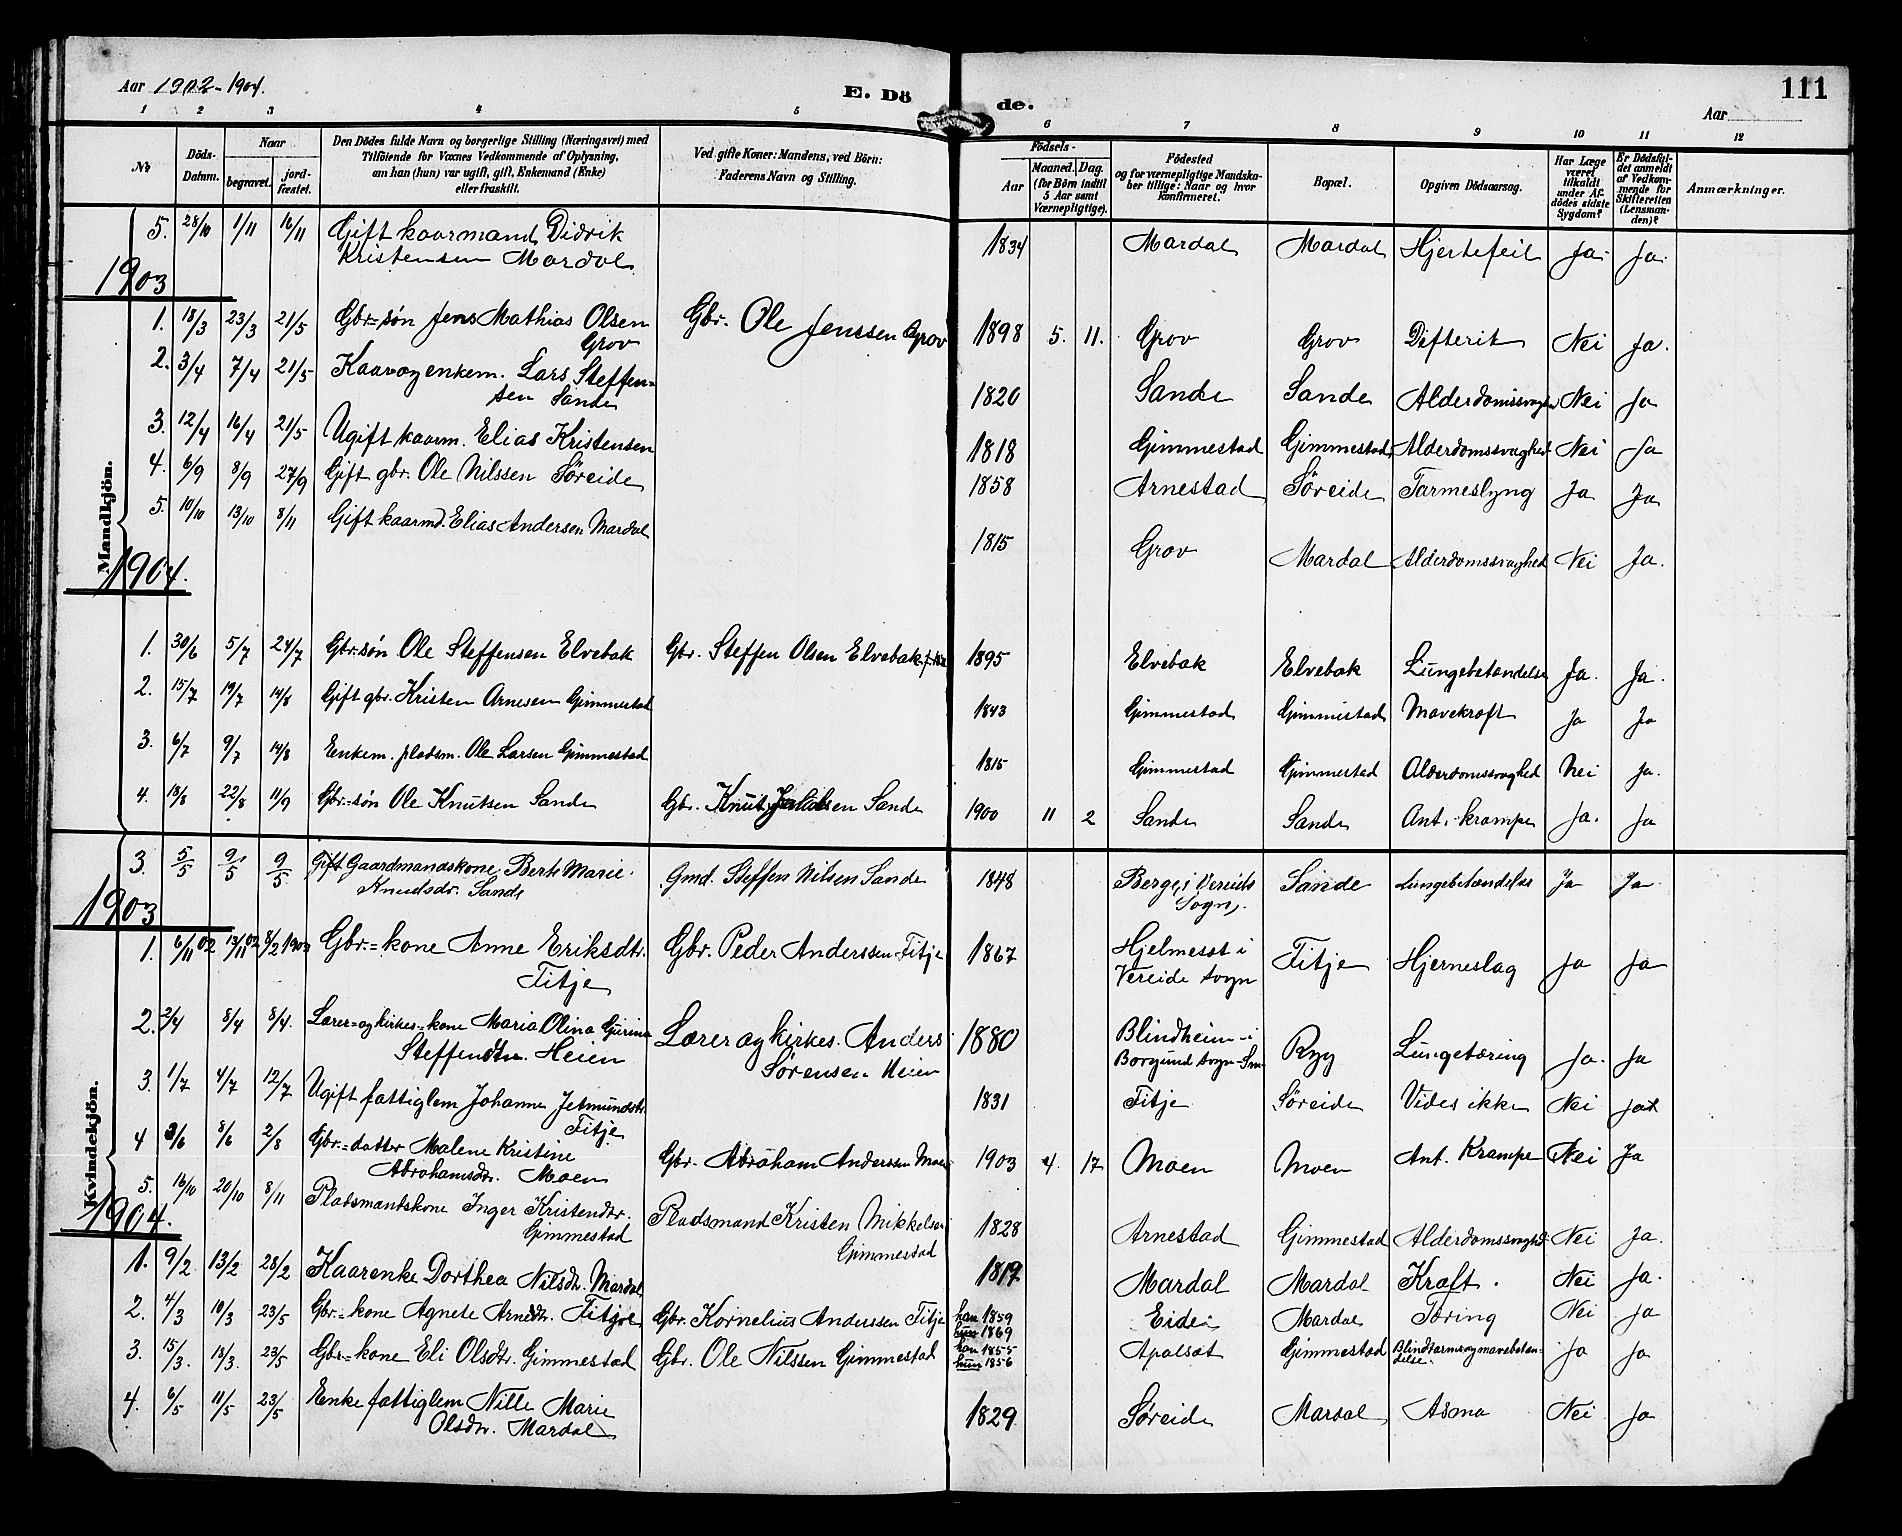 Aar 1902-1904.
E. Döde.
111
Aar
1 2 3 4 5 6 7 8 9 10 11 12
No
Döds-Datum.
Naar
begravet.
jord-fæstet.
Den Dödes fulde Navn og borgerlige Stilling (Næringsvei) med
Tilföiende for Voxnes Vedkommende af Oplysning,
om han (hun) var ugift, gift, Enkemand (Enke)
eller fraskilt.
Ved gifte Koner: Mandens, ved Börn:
Faderens Navn og Stilling.
Födsels-
Aar
Maaned. Dag.
(for Börn indtil
5 Aar samt
Værnepligtige).
Födested
og for værnepligtige Mandska-
ber tillige: Naar og hvor
konfirmeret.
Bopæl.
Opgiven Dödsaarsag.
Har Læge
været
tilkaldt
under Af-
dödes sidste
Sygdom?
Er Dödsfal-
det anmeldt
af Vedkom-
mende for
Skifteretten
(Lensman-
den)?
Anmærkninger.
Mandkjön.
5. 28/10 1/11 16/11 Gift kaarmand Didrik 1834 Mardal Mardal Hjertefeil Ja. Ja.
Kristensen Mardal
1903
1. 18/3 23/3 21/5 Gbr.=søn Jens Mathias Olsen Gbr. Ole Jenssen Grov 1898 5. 11. Grov Grov Difterit Nei Ja.
Grov
2. 3/4 7/4 21/5 Kaarogenkem. Lars Steffen= 1820 Sande Sande Alderdomssvaghed Nei Ja
sen Sande
3. 12/4 16/4 21/5 Ugift kaarm. Elias Kristensen 1818 Gimmestad Gimmestad Alderdomssvaghed Nei Ja
4. 6/9 8/9 27/9 Gift gbr. Ole Nilssen Søreide 1858 Arnestad Søreide Tarmeslyng Ja Ja
5. 10/10 13/10 8/11 Gift kaarmd. Elias Andersen Mardal 1815 Grov Mardal Alderdomssvaghed Nei Ja.
1904.
1. 30/6 5/7 24/7 Gbr.søn Ole Steffensen Elvebak Gbr. Steffen Olsen Elvebak 1895 Elvebak Elvebak Lungebetændelse Ja. Ja.
2. 15/7 19/7 14/8 Gift gbr. Kristen Arnesen Gimmestad 1843 Gimmestad Gimmestad Mavekræft Ja Ja
3. 6/7 9/7 14/8 Enkem. pladsm. Ole Larsen Gimmestad 1815 Gimmestad Gimmestad Alderdomssvaghed Nei Ja.
4. 18/8 22/8 11/9 Gbr.=søn Ole Knutsen Sande Gbr. Knut Sande 1900 11 2 Sande Sande Ant. krampe Ja. Ja
Kvindekjön.
3. 5/5 9/5 9/5 Gift Gaardmandskone Berte Marie Gmd. Steffen Nilsen Sande 1848 Berge i Vereids Sande Lungebetændelse Ja Ja
Knudsdr. Sande Sogn.
1903
1. 6/11 02 13/11 02 8/2 1903 Gbr.=kone Anne Eriksdtr. Gbr. Peder Anderssen Fitje 1867 Hjelmeset i Fitje Hjerneslag Ja Ja
Fitje Vereide sogn
2. 2/4 8/4 8/4. Lærer=og kirkes.=kone Maria Olina Gurine Lærer og kirkes. Anders 1880 Blindheim i Ryg Lungetæring Ja. Ja
Steffendtr. Heien Sørensen Heien Borgund sogn
3. 1/7 4/7 12/7 Ugift fattiglem Johanne Jetmundsdtr. 1831 Fitje Søreide Vides ikke Nei Ja
Fitje
4 3/6 8/6 2/8 Gbr.=datter Malene Kristine Gbr. Abraham Anderssen Moen 1903 4. 17 Moen Moen Ant. Krampe Nei Ja
Abrahamsdtr. Moen
5. 16/10 20/10 8/11 Pladsmandskone Inger Kristendtr. Pladsmand Kristen Mikkelsen 1828 Arnestad Gimmestad Alderdomssvaghed Nei Ja.
Gimmestad Gimmestad
1904.
1. 9/2 13/2 28/2 Kaarenke Dorthea Nilsdtr. Mardal 1817 Mardal Mardal Kræft. Nei Ja.
2. 4/3 10/3 23/5 Gbr.=kone Agnete Arnedtr. Fitje Gbr. Kornelius Anderssen Fitje han 1859 Eide Mardal Tæring Nei Ja
hun 1869
3. 15/3. 18/3. 23/5 Gbr.=kone Eli Olsdtr. Gimmestad Gbr. Ole Nilssen Gimmestad han 1855 Apalset Gimmestad Blindtarmsogmavebetæn- Ja Ja
hun 1856 delse.
4. 6/5 11/5 23/5 Enke fattiglem Nille Marie 1829 Søreide Mardal Asma Nei Ja
Olsdtr. Mardal